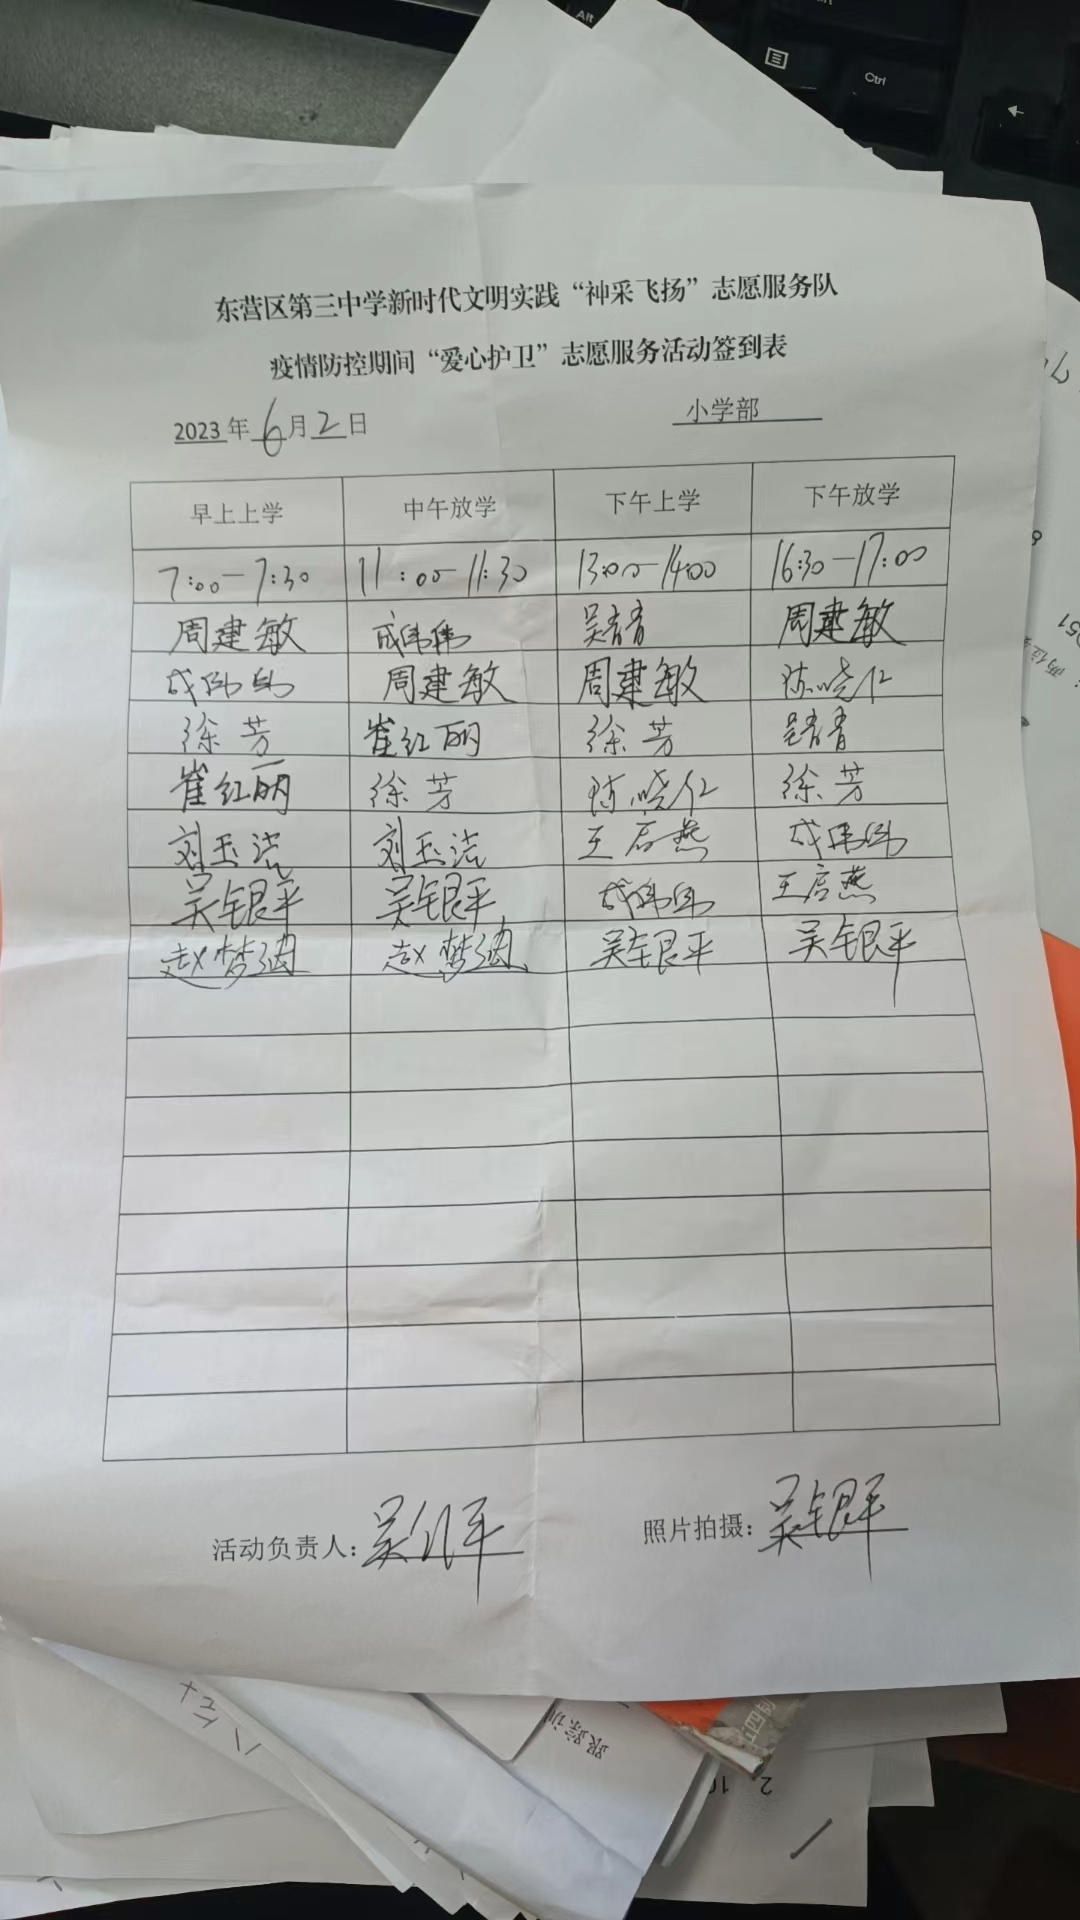 Alt
Ctrl
东营区第三中学新时代文明实践“神采飞扬”志愿服务队
疫情防控期间“爱心护卫”志愿服务活动签到表
2023年6月2日 小学部
早上上学 中午放学 下午上学 下午放学
7:00-7:30 11:00-11:30 13:00-14:00 16:30-17:00
周建敏 成伟伟 吴青青 周建敏
成伟伟 周建敏 周建敏 陈晓仁
徐芳 崔红丽 徐芳 吴青青
崔红丽 徐芳 陈晓仁 徐芳
刘玉洁 刘玉洁 王启燕 成伟伟
吴银平 吴银平 成伟伟 王启燕
赵梦涵 赵梦涵 吴银平 吴银平
活动负责人：吴银平 照片拍摄：吴银平
跟踪训
2 10